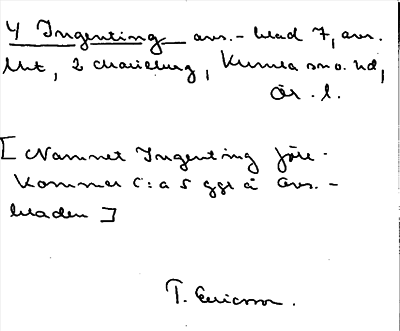 4 Ingenting avs.-blad 7, avs.
Mut, 2 Charlberg, Kumla sn o. hd,
Ör. l.
[Namnet Ingenting före-
kommer c:a 5 ggr å avs.-
bladen]
T. Ericsson.